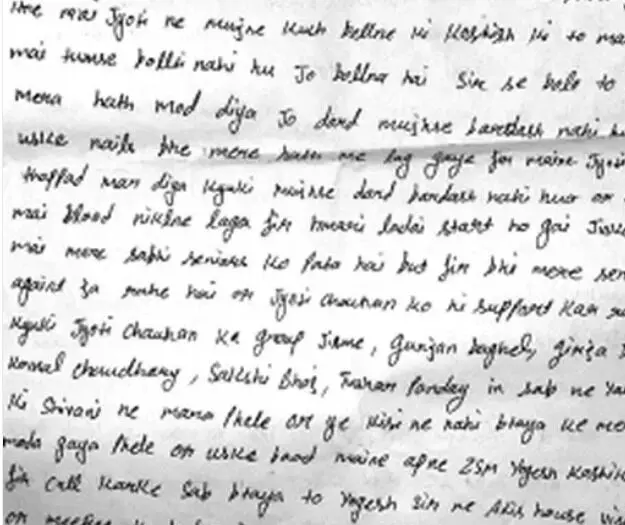 Jyoti ne mujhe kuch bollne ki koshish ki to ma
mai tumse bolti nahi hu Jo bollna hai Sir se bolo to
mera hath mod diya Jo dard mujhse bardash nahi hu
uske nails bhe mere hath me lag gaye fir maine Jyoti
thappad mar diya kyuki mujhse dard bardash nahi hua or
mai blood niklne laga fir hmari ladai start ho gai
mai mere sabhi seniors ko pata hai but fir bhi mere sen
againt ja rahe hai or Jyoti chauhan ko hi support kar
kyuki Jyoti chauhan ka group Jisme, Gunjan baghel,
Komal choudhary, Sakshi Panday in sab ne
ki Shivani ne mara Phele or ye kisi ne nahi btaya ke me
moda gaya Phele or uske baad maine apne ZSM Yogesh Kashik
fir call karke sab btaya to Yogesh Sir ne house
or